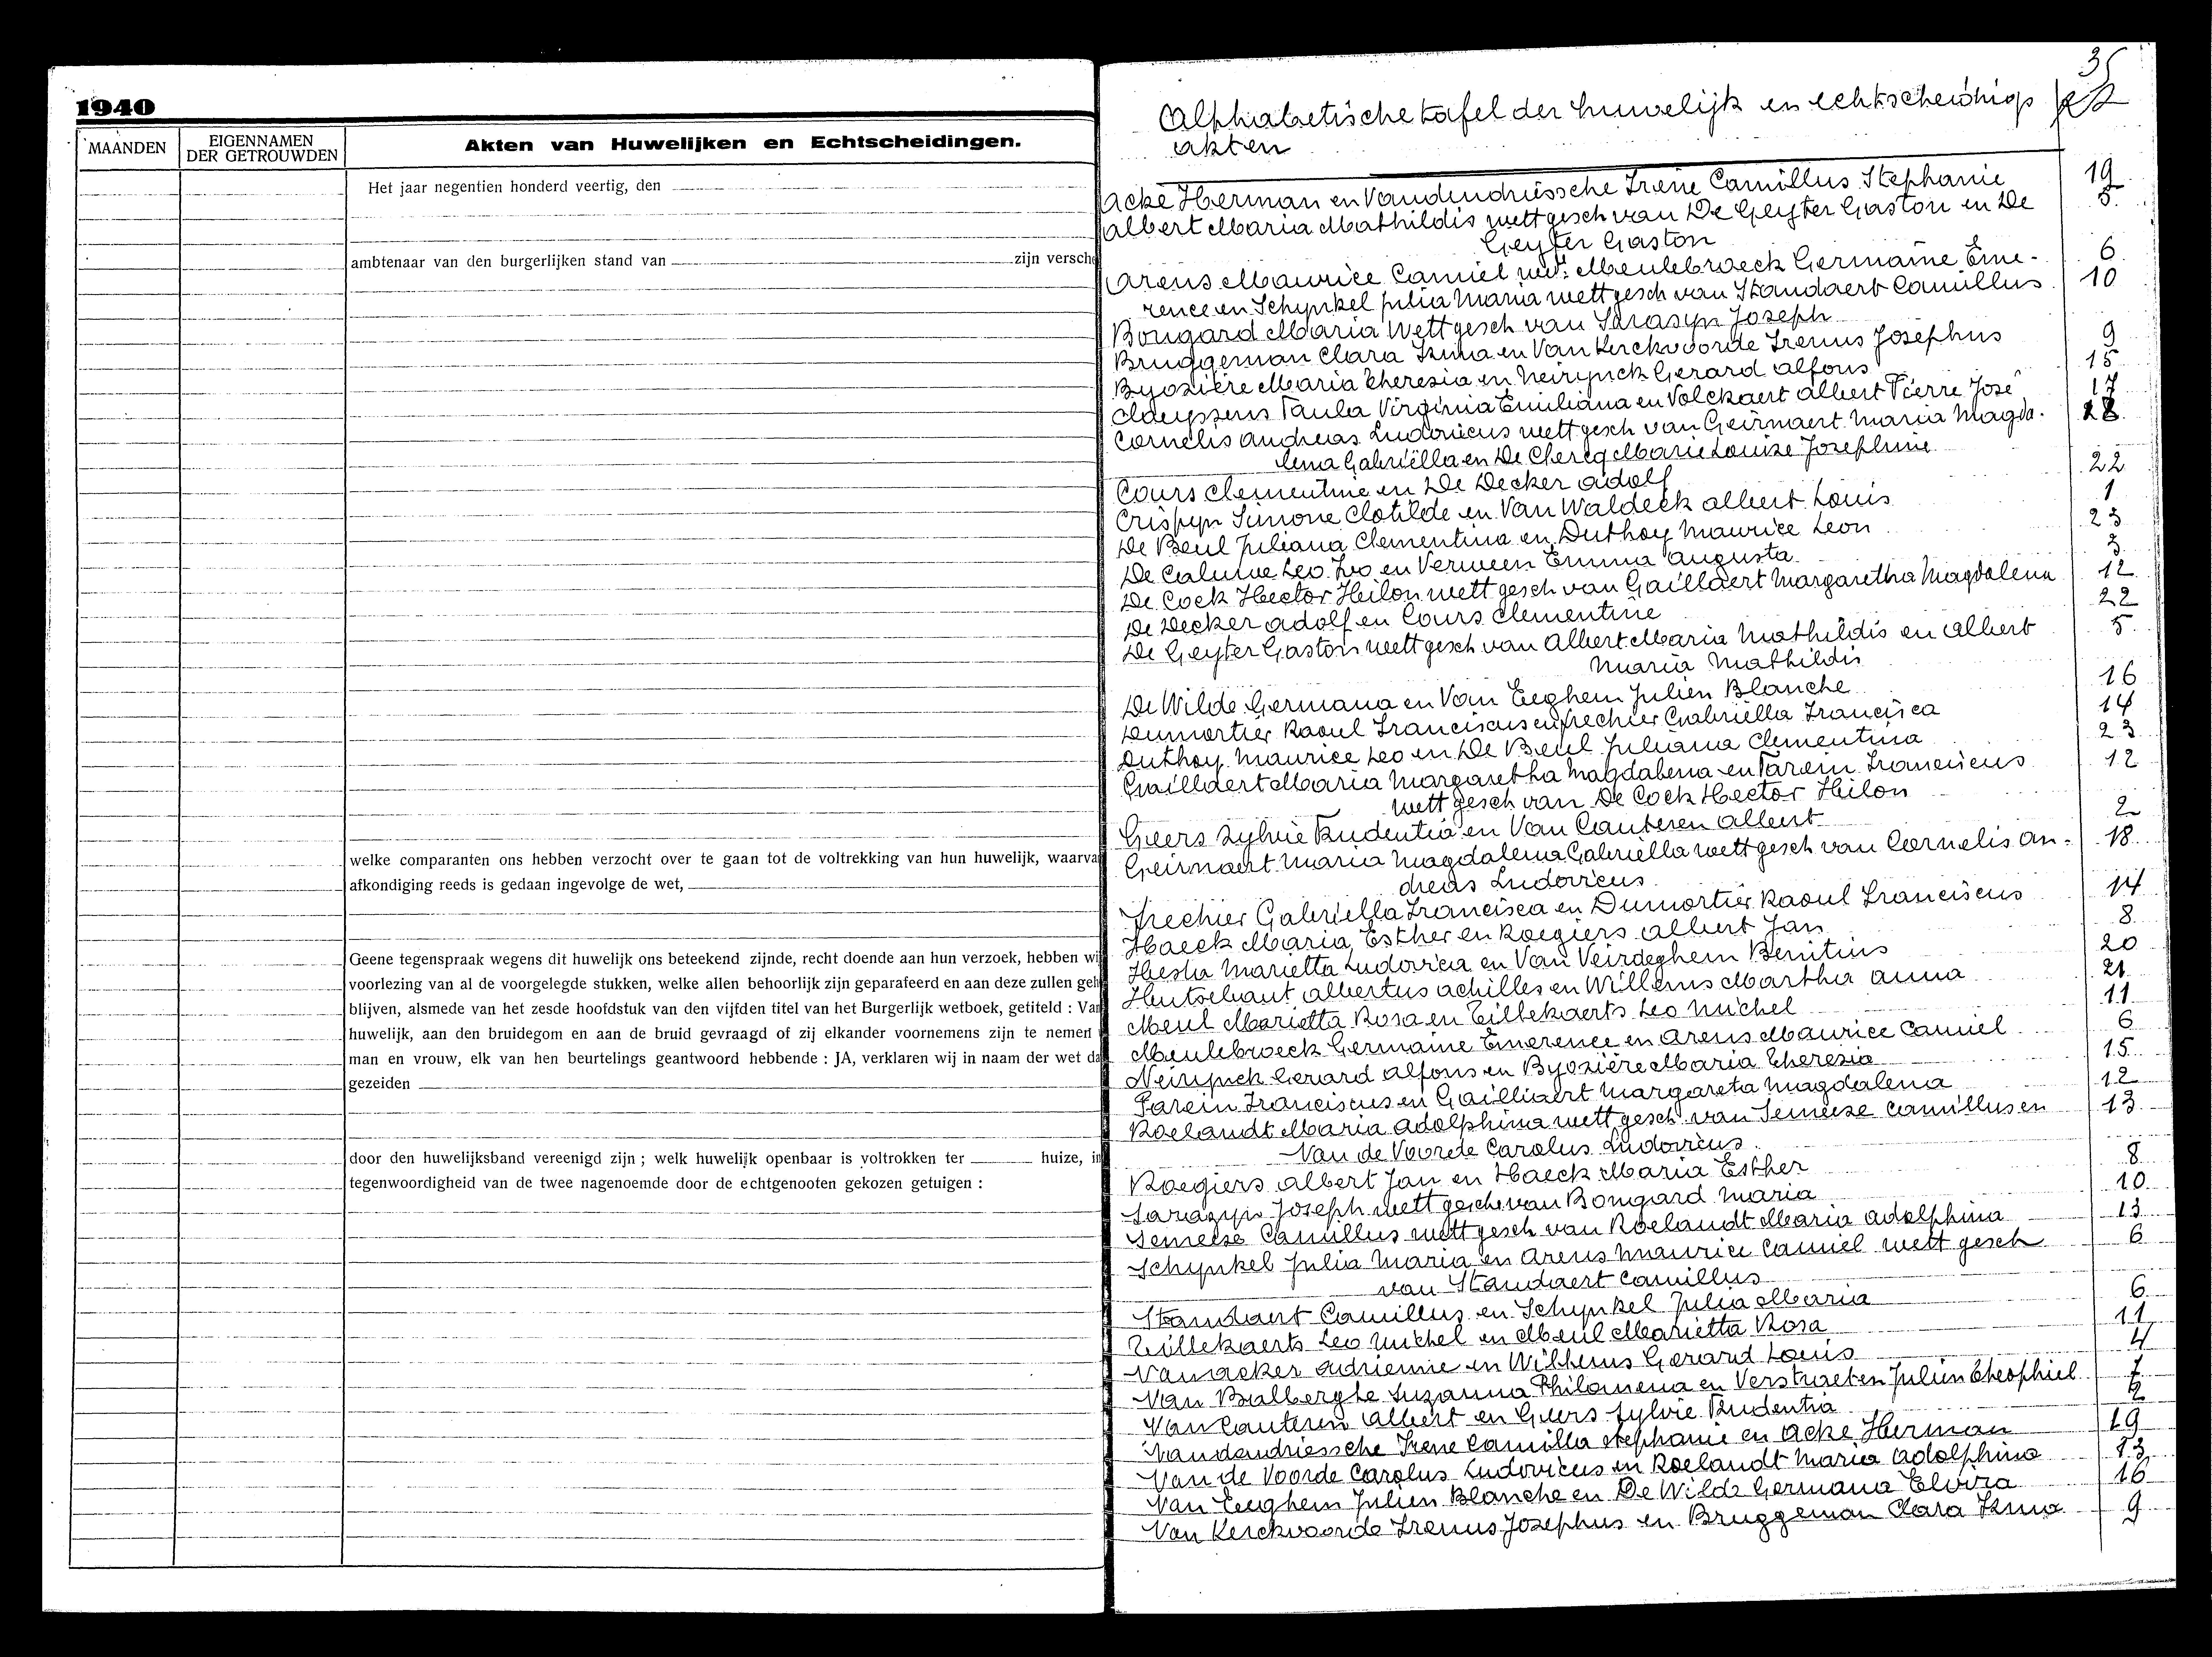 1940
MAANDEN
EIGENNAMEN
DER GETROUWDEN
Akten van Huwelijken en Echtscheidingen.
Het jaar negentien honderd veertig, den
ambtenaar van den burgerlijken stand van zijn versch
welke comparanten ons hebben verzocht over te gaan tot de voltrekking van hun huwelijk, waarva
afkondiging reeds is gedaan ingevolge de wet,
Geene tegenspraak wegens dit huwelijk ons beteekend zijnde, recht doende aan hun verzoek, hebben wi
voorlezing van al de voorgelegde stukken, welke allen behoorlijk zijn geparafeerd en aan deze zullen geh
blijven, alsmede van het zesde hoofdstuk van den vijfden titel van het Burgerlijk wetboek, getiteld : Van
huwelijk, aan den bruidegom en aan de bruid gevraagd of zij elkander voornemens zijn te nemen
man en vrouw, elk van hen beurtelings geantwoord hebbende : JA, verklaren wij in naam der wet da
gezeiden
door den huwelijksband vereenigd zijn ; welk huwelijk openbaar is voltrokken ter huize, in
tegenwoordigheid van de twee nagenoemde door de echtgenooten gekozen getuigen :
35
Alphabetische tafel der huwelijk en echtscheidings
akten
Acke Herman en Vandendriessche Irene Camillus Stephanie 19
Albert Maria Mathildis wett gesch van De Geyter Gaston en De 5
Geyter Gaston
Arens Maurice Camiel wedr Meulebroeck Germaine Eme- 6
rence en Schynkel Julia Maria wett gesch van Standaert Camillus
Bougard Maria wett gesch van Sarasyn Joseph 10
Bruggeman Clara Irma en Van Kerckvoorde Irenus Josephus 9
Byozière Maria Theresia en Neirynck Gerard Alfons 15
Claeyssens Paula Virginia Emiliana en Volckaert Albert Pierre José 17
Cornelis Andreas Ludovicus wett gesch van Geirnaert Maria Magda- 18
lena Gabriëlla en De Clercq Marie Louise Josephine
Cours Clementine en De Decker Adolf 22
Crispyn Simone Clotilde en Van Waldeck Albert Louis 1
De Beul Juliana Clementina en Duthoy Maurice Leon 23
De Caluwe Leo Ivo en Vermeen Emma Augusta 3
De Cock Hector Heilon wett gesch van Gaillaert Margaretha Magdalena 12
De Decker Adolf en Cours Clementine 22
De Geyter Gaston wett gesch van Albert Maria Mathildis en Albert 5
Maria Mathildis
De Wilde Germana en Van Eeghem Julien Blanche 16
Dumortier Raoul Franciscus en Frechier Gabriella Francisca 14
Duthoy Maurice Leo en De Beul Juliana Clementina 23
Gaillaert Maria Margaretha Magdalena en Parein Franciscus 12
wett gesch van De Cock Hector Heilon
Geers Sylvie Prudentia en Van Cauteren Albert 2
Geirnaert Maria Magdalena Gabriella wett gesch van Cornelis An- 18
dreas Ludovicus
Frechier Gabriella Francisca en Dumortier Raoul Franciscus 14
Haeck Maria Esther en Roegiers Albert Jan 8
Hesta Marietta Ludovica en Van Veirdeghem Benitius 20
Hutsebaut Albertus Achilles en Willems Martha Anna 21
Meul Marietta Rosa en Tillekaerts Leo Michel 11
Meulebroeck Germaine Emerence en Arens Maurice Camiel 6
Neirynck Gerard Alfons en Byozière Maria Theresia 15
Parein Franciscus en Gailliaert Margareta Magdalena 12
Roelandt Maria Adolphina wett gesch van Semeese Camillus en 13
Van de Voorde Carolus Ludovicus
Roegiers Albert Jan en Haeck Maria Esther 8
Sarazyn Joseph wett gesch van Bongard Maria 10
Semeese Camillus wett gesch van Roelandt Maria Adolphina 13
Schynkel Julia Maria en Arens Maurice Camiel wett gesch 6
van Standaert Camillus
Standaert Camillus en Schynkel Julia Maria 6
Tillekaerts Leo Michel en Meul Marietta Rosa 11
Vanacker Adrienne en Wilhems Gerard Louis 4
Van Bralberghe Suzanna Philomena en Verstraeten Julien Theophiel 7
Van Cauteren Albert en Geers Sylvie Prudentia 2
Vandendriessche Irene Camilla Stephanie en Acke Herman 19
Van de Voorde Carolus Ludovicus en Roelandt Maria Adolphina 13
Van Eeghem Julien Blanche en De Wilde Germana Elvira 16
Van Kerckvoorde Irenus Josephus en Bruggeman Clara Irma 9